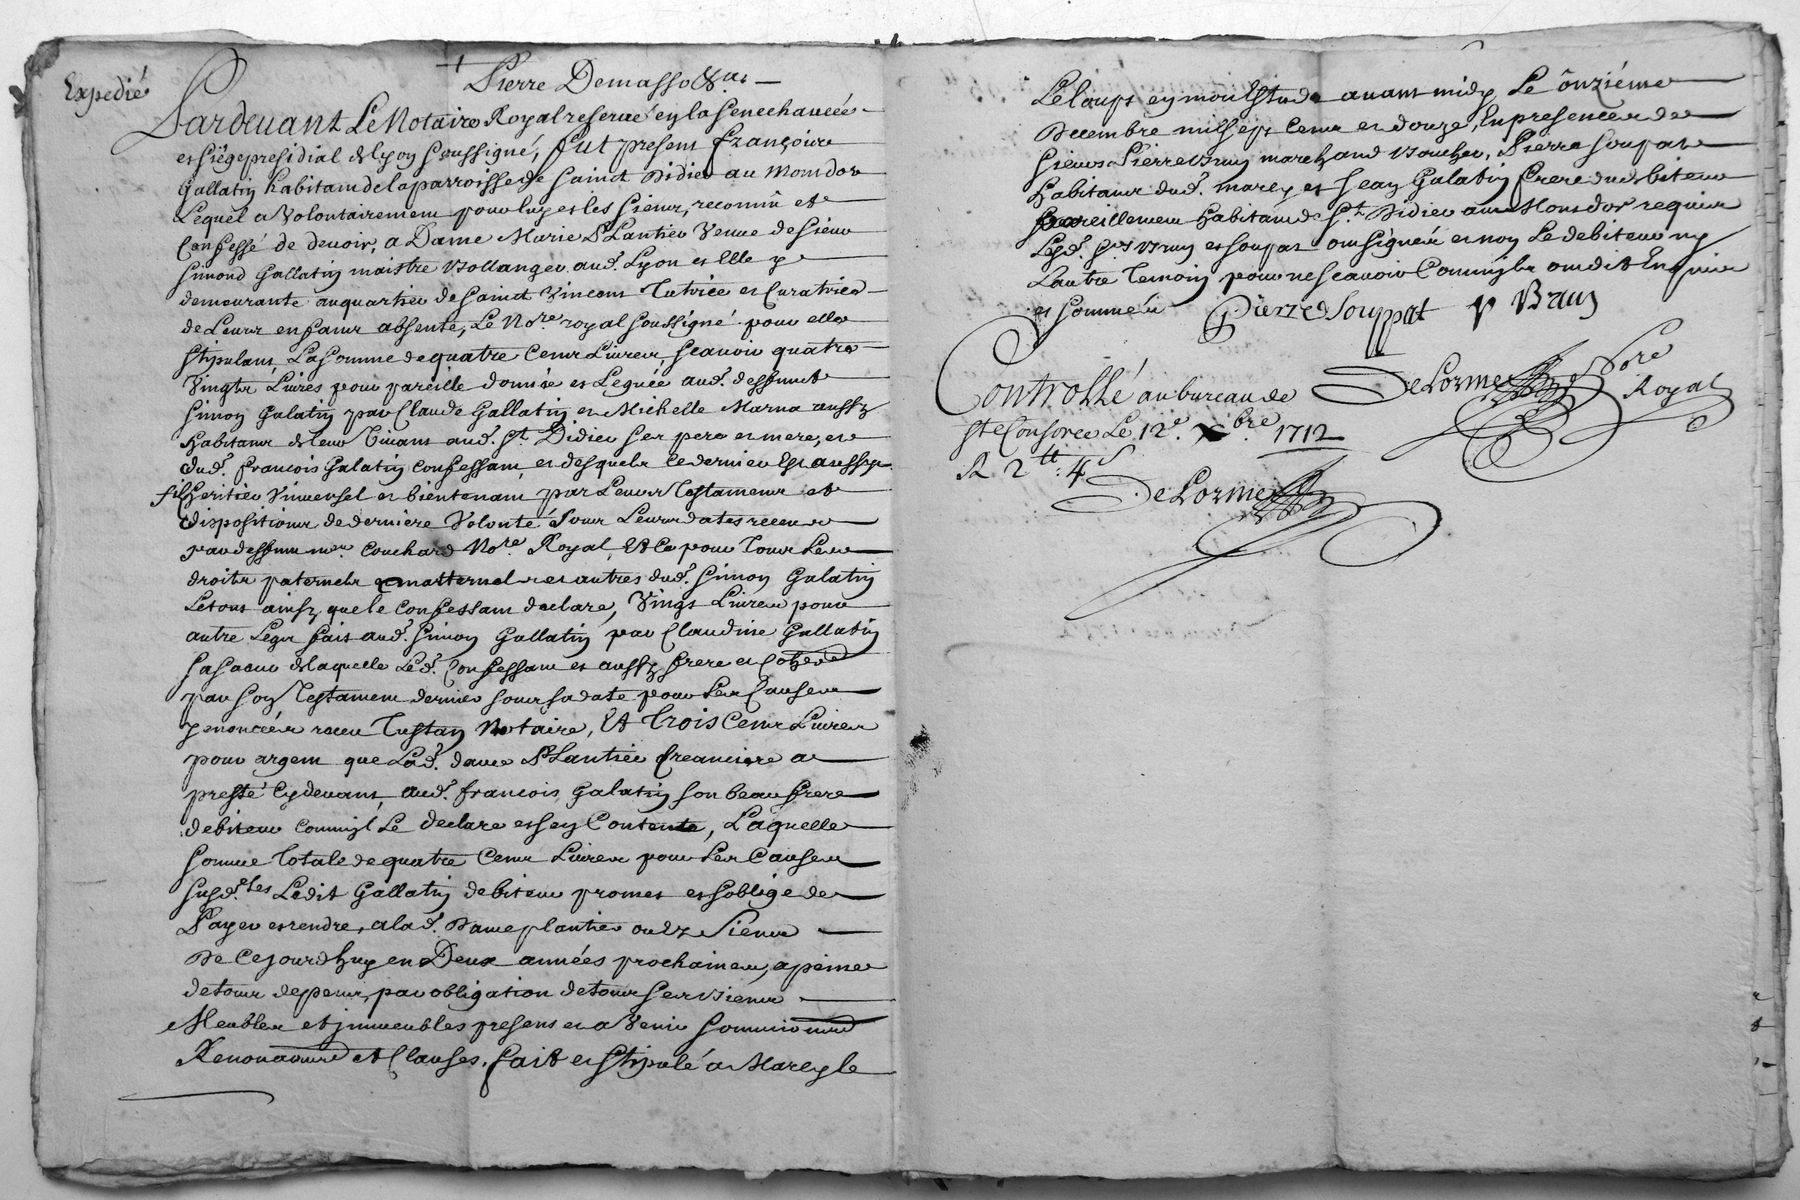 Expedié
Pierre Demasso &a.
Pardevant Le Notaire Royal reservé en la Senechaucée
et siége presidial de lyon soussigné, fut present françois
Gallatin habitant de la parroisse de saint Didier au montdor
Lequel a volontairement pour luy et les siens, reconnu et
Confessé de devoir, a Dame Marie Plantier veuve de sieur
Simond Gallatin maistre Bollanger aud. Lyon et Elle y
demeurante au quartier de saint vincent Tutrice et Curatrice
de Leurs enfans absente, Le No.re royal soussigné pour elle
stipulant, La somme de quatre Cent Livres, scavoir quatre
vingts Livres pour pareille donnée et Leguée aud. deffunct
Simon Galatin par Claude Gallatin et Michelle Marna aussy
habitans de leur vivant aud. St. Didier ses pere et mere, et
dud. francois Galatin confessant, et desquels ce dernier Est aussy
fils heritier universel et bientenant par Leurs Testamens et
dispositions de derniere volonté sous Leurs dates receus
par deffunt me. Couchard No.re Royal Et Ce pour Tous Les
droits paternels et maternels et autres dud. Simon Galatin
Le tout ainsy que le confessant declare, vingt Livres pour
autre Legs fait aud. Simon Gallatin par Claudine Gallatin
sa soeur de laquelle Led. Confessant est aussy frere et Coher.
par son Testament dernier sous sa date pour Les Causes
y enoncées receu Tustan Notaire, Et Trois Cent Livres
pour argent que Lad. dame Plantier Creanciere a
presté Cy devant, aud. francois Galatin son beau frere
debiteur comm'il Le declare et s'en Contente, Laquelle
somme Totale de quatre Cent Livres pour Les Causes
susd.tes Ledit Gallatin debiteur promet et s'oblige de
Payer et rendre, a lad. Dame plantier ou ez siens
De Cejourdhuy en Deux années prochaines, a peine
de tous depens, par obligation de tous ses biens
Meubles et jmmeubles presens et a venir
Renon et Clauses, fait et stipulé a Marcy le
Le loups en mon Estude avant midy Le ônziéme
Decembre mil sept Cent et douze, En presence de
sieurs Pierre Brun marchand Boucher, Pierre soupat
habitans dud. marcy et Jean Galatin frere dud debiteur
pareillement habitant de St. Didier au Montdor requis
Lesd. srs Brun et soupat ont signé et non Le debiteur ny
L'autre Temoin pour ne scavoir Comm'ils ont dit Enquis
et sommés Pierre Souppat P Brun
Controllé au bureau de DeLorme No.re
Royal
Ste Consorce Le 12e. Xbre 1712
R 2 tt : 4 s
DeLorme